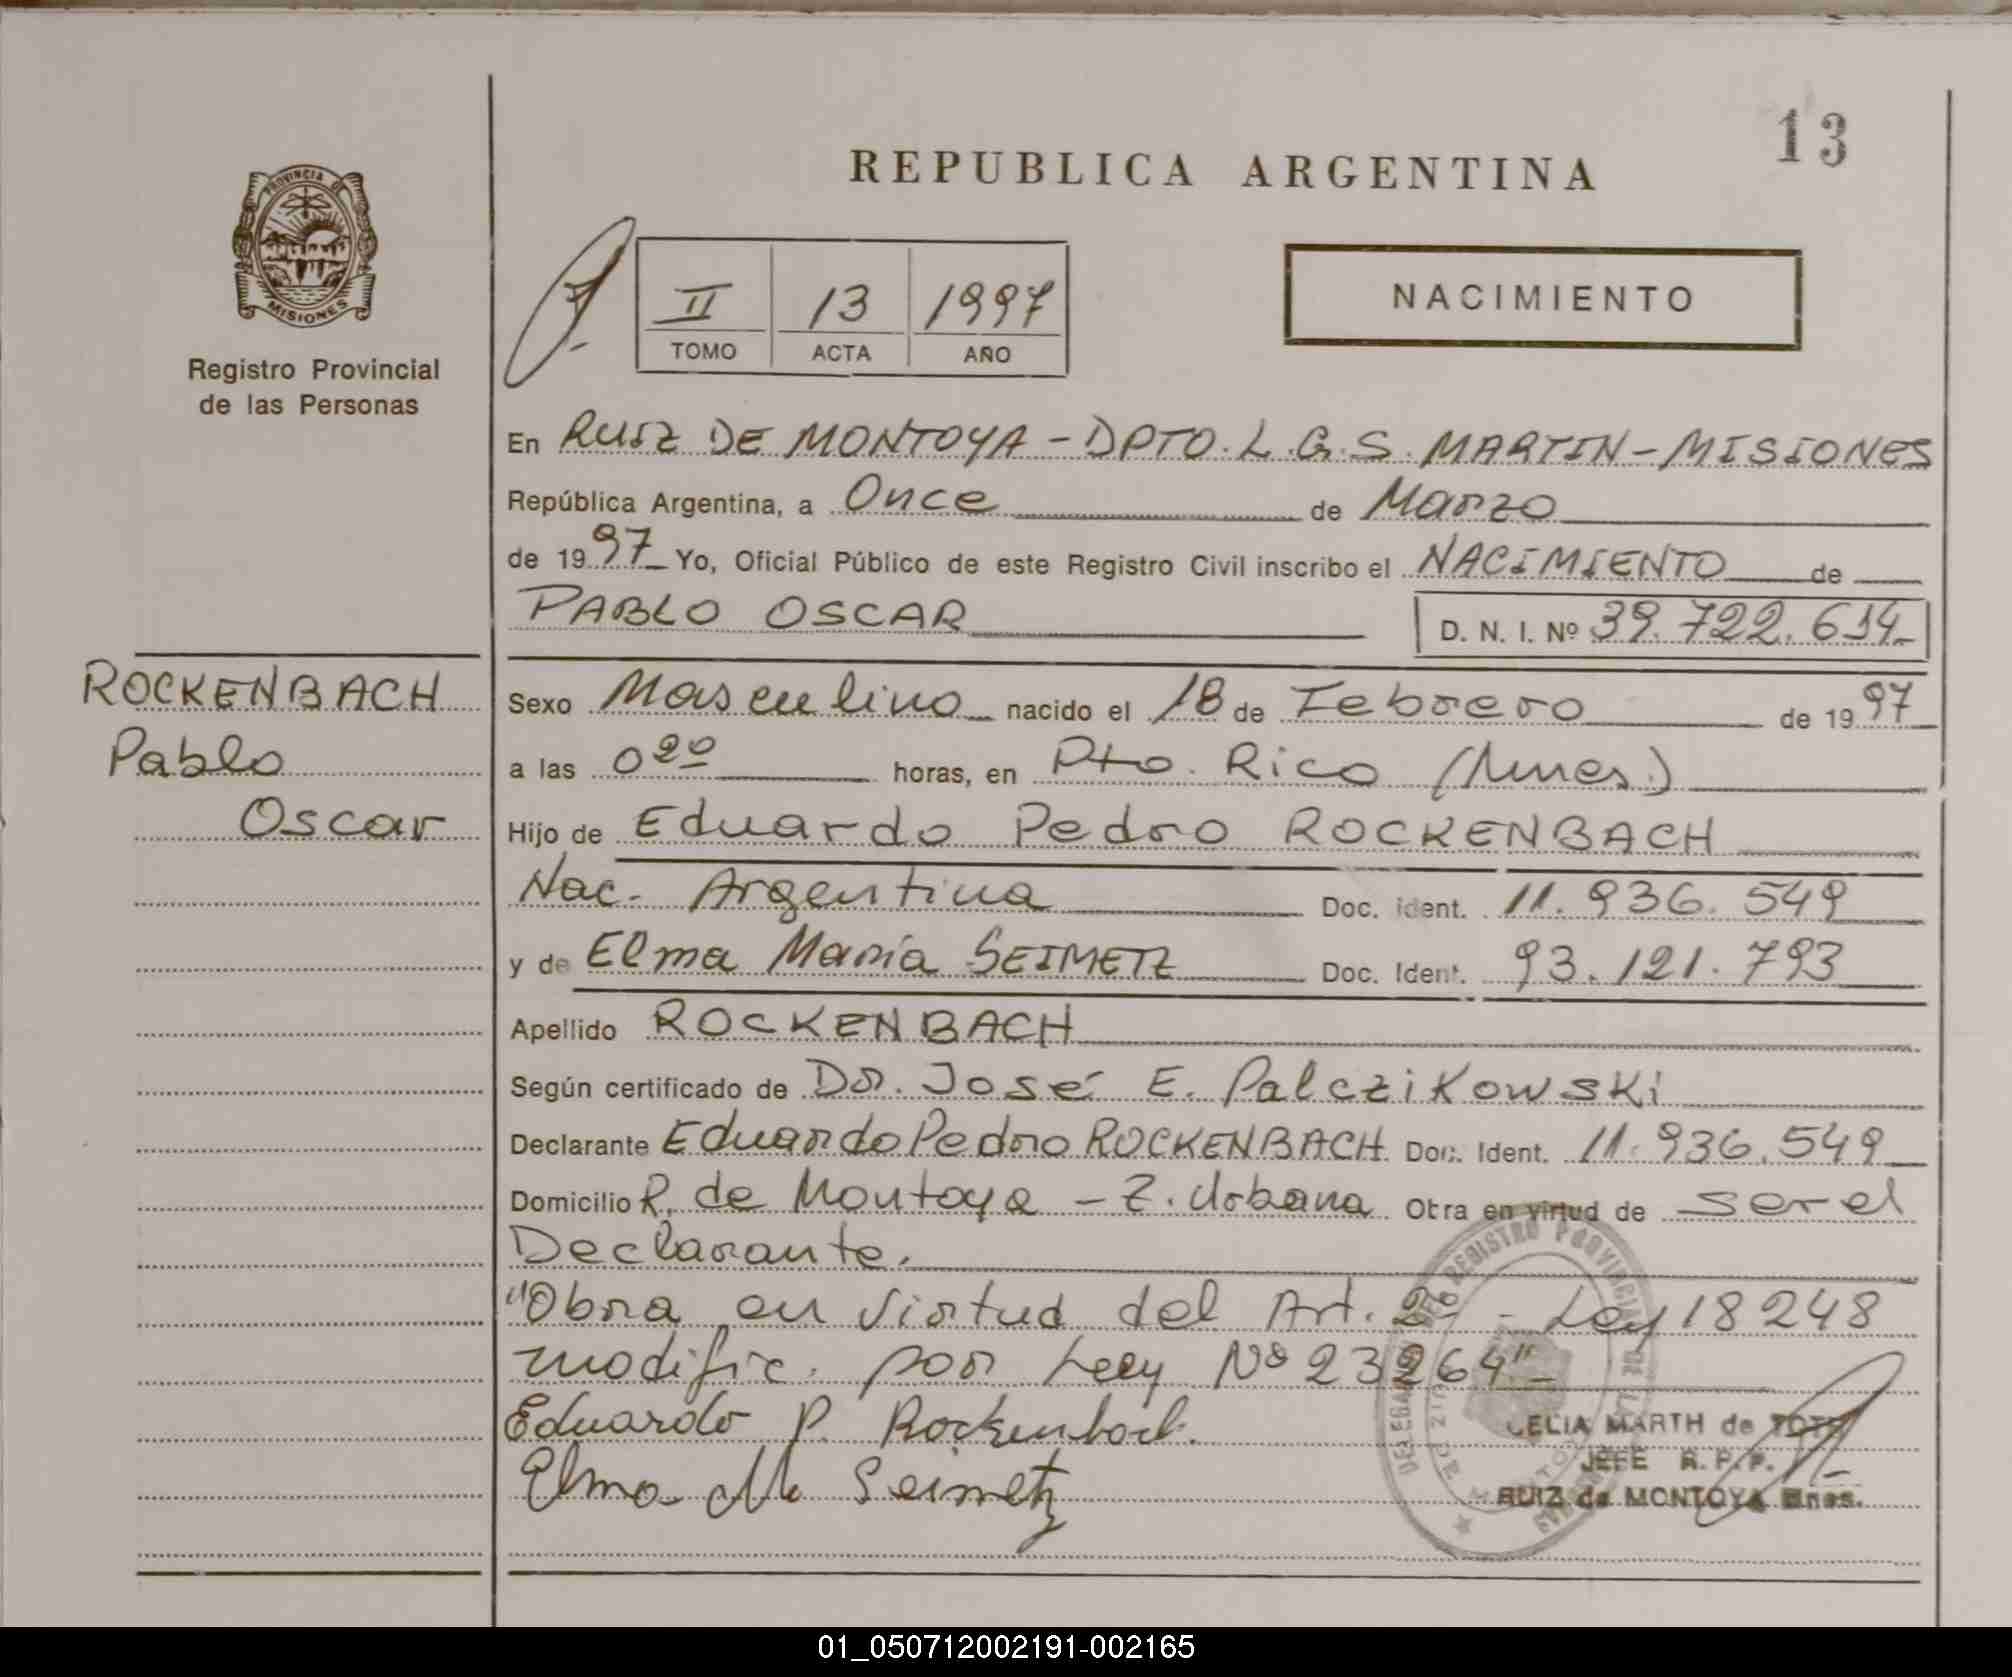 13
REPUBLICA ARGENTINA
PROVINCIA DE
MISIONES
Registro Provincial
de las Personas
II 13 1997
TOMO ACTA AÑO
NACIMIENTO
En RUIZ DE MONTOYA - DPTO. L.G.S. MARTIN - MISIONES
República Argentina, a Once de Marzo
de 1997 Yo, Oficial Público de este Registro Civil inscribo el NACIMIENTO de
PABLO OSCAR D. N. I. Nº 39.722.614
ROCKENBACH
Pablo
Oscar
Sexo Masculino nacido el 18 de Febrero de 1997
a las 0 20 horas, en Pto. Rico (Mnes.)
Hijo de Eduardo Pedro ROCKENBACH
Nac. Argentina Doc. ident. 11.936.549
y de Elma María SEIMETZ Doc. Ident. 93.121.793
Apellido ROCKENBACH
Según certificado de Dr. José E. Palczikowski
Declarante Eduardo Pedro ROCKENBACH Doc. Ident. 11.936.549
Domicilio R. de Montoya - Z. Urbana Otra en virtud de ser el
Declarante.
"Obra en virtud del Art. 2º - Ley 18248
modific. por Ley Nº 23264"
Eduardo P. Rockenbach
Elma M. Seimetz
CELIA MARTH de TOTH
JEFE R.P.P.
RUIZ de MONTOYA Mnes.
01_050712002191-002165